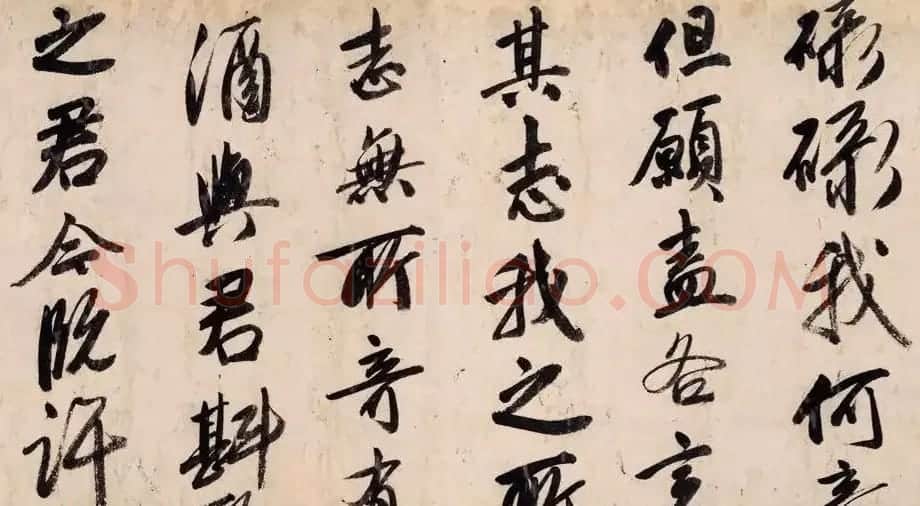 碌碌我何
但願盡各言
其志我之所
志無所奇有
酒與君斟
之君今既許
Shufaziliao.COM